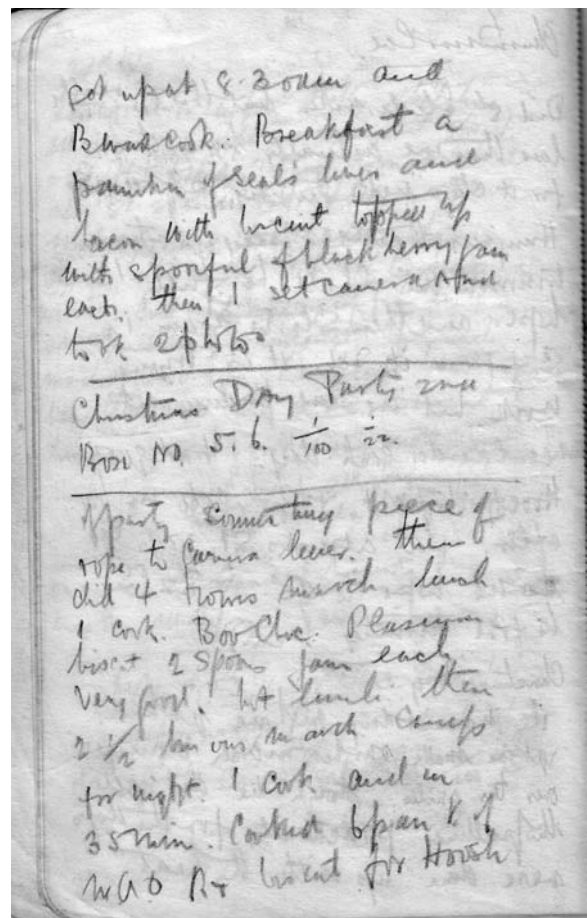 got up at 8.30am and
B was cook. Breakfast a
pannikin of seal's liver and
bacon with biscuit topped up
with spoonful of blackberry jam
each. then I set camera and
took 2 photos
Christmas DAy Party 2
Box No. 5.6. 1/100 1/22.
of party connecting piece of
rope to camera lever. then
did 4 hours march lunch
I cook. Bov Choc. Plasmon
biscut 2 spoons jam each
very good! hot lunch then
2 1/2 hours march camps
for night. I cook and in
35 min. Cooked 6 pan &
biscut for Hoosh